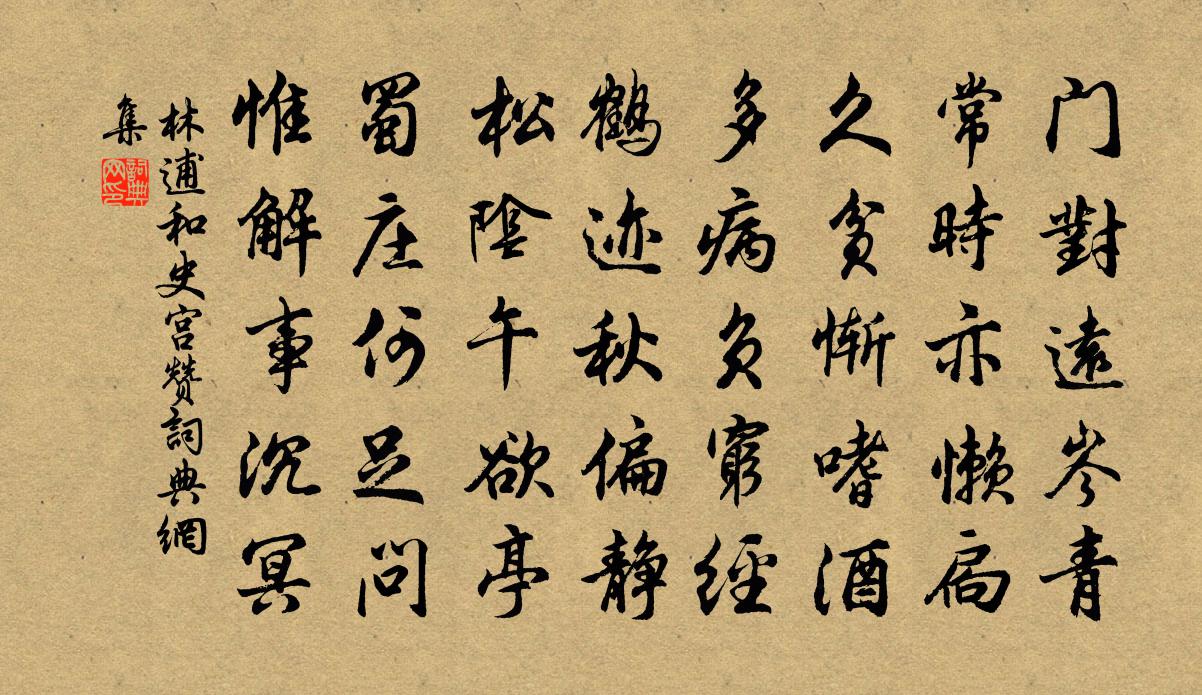 门對遠岑青
常時亦懒扃
久贫惭嗜酒
多病負窮經
鶴迹秋偏静
松陰午欲亭
蜀庄何足问
惟解事沉冥
林逋和史宫赞詞典網
集
詞典网印